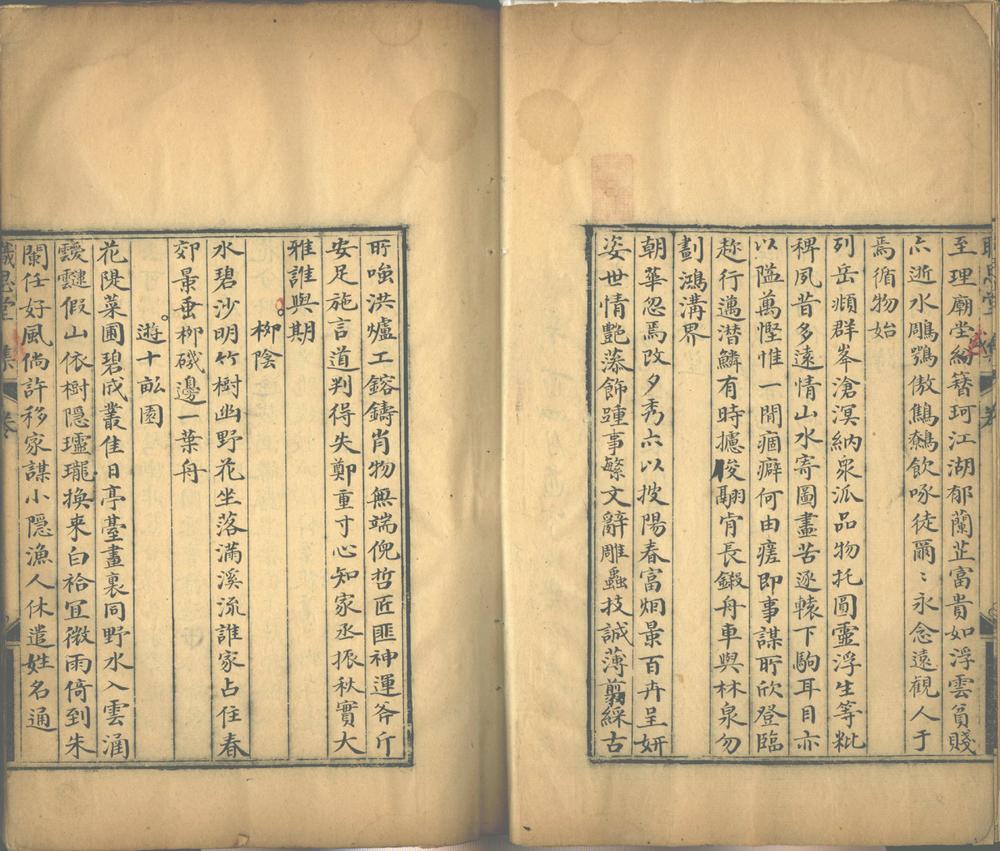 至理廟堂紛簪珂江湖郁蘭芷富貴如浮雲貧賤
亦逝水鵰鶚傲鷦鷯飲啄徒爾〻永念遠觀人于
焉循物始
列岳頫群峯滄溟納衆派品物托圓靈浮生等粃
稗夙昔多遠情山水寄圖畫苦逐轅下駒耳目亦
以隘萬慳惟一閒痼癖何由瘥即事謀所欣登臨
趂行邁潜鱗有時攄俊翮肯長鎩舟車與林泉勿
劃鴻溝界
朝華忽焉改夕秀亦以披陽春富烱景百卉呈妍
姿世情艷藻飾踵事繁文辭雕蟲技誠薄翦綵古
所嗤洪爐工鎔鑄肖物無端倪哲匠匪神運斧斤
安足施言道判得失鄭重寸心知家丞振秋實大
雅誰與期
柳陰
水碧沙明竹樹幽野花坐落滿溪流誰家占住春
郊景垂柳磯邊一葉舟
遊十畝園
花隄菜圃碧成叢佳日亭臺畫裏同野水入雲涵
靉靆假山依樹隱瓏瓏換来白袷宜微雨倚到朱
闌任好風倘許移家謀小隱漁人休遣姓名通
思堂
集
卷